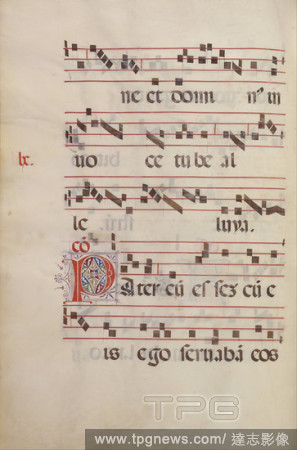 ne et domi n⁹ in
lx. uo ce tube al
le luya.
cō
Pater cū essez cū e
is ego seruabā eos
TPG
www.tpgnews.com | 達志影像